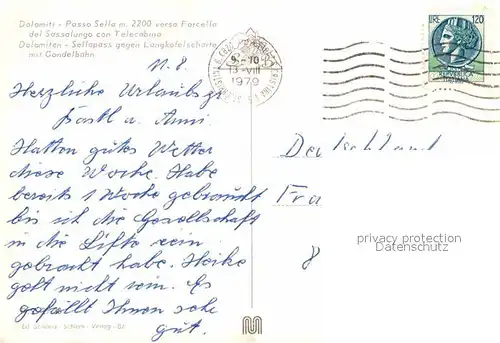 Dolomiti - Passo Sella m. 2200 verso Forcella
del Sassolungo con Telecabina
Dolomiten - Sellapass gegen Langkofelscharte
mit Gondelbahn
LIRE 120
9-10
13-VIII
1979
Herzliche Urlaubsgr.
u. Anni.
Hatten gutes Wetter
diese Woche. Habe
bereits 1 Woche gebraucht
bis ich die Gesellschaft
in die Lifte rein
gebracht habe. Heike
geht nicht rein. Es
gefällt Ihnen sehr
gut.
Deutschland
Frau
8
privacy protection
CARD00.COM